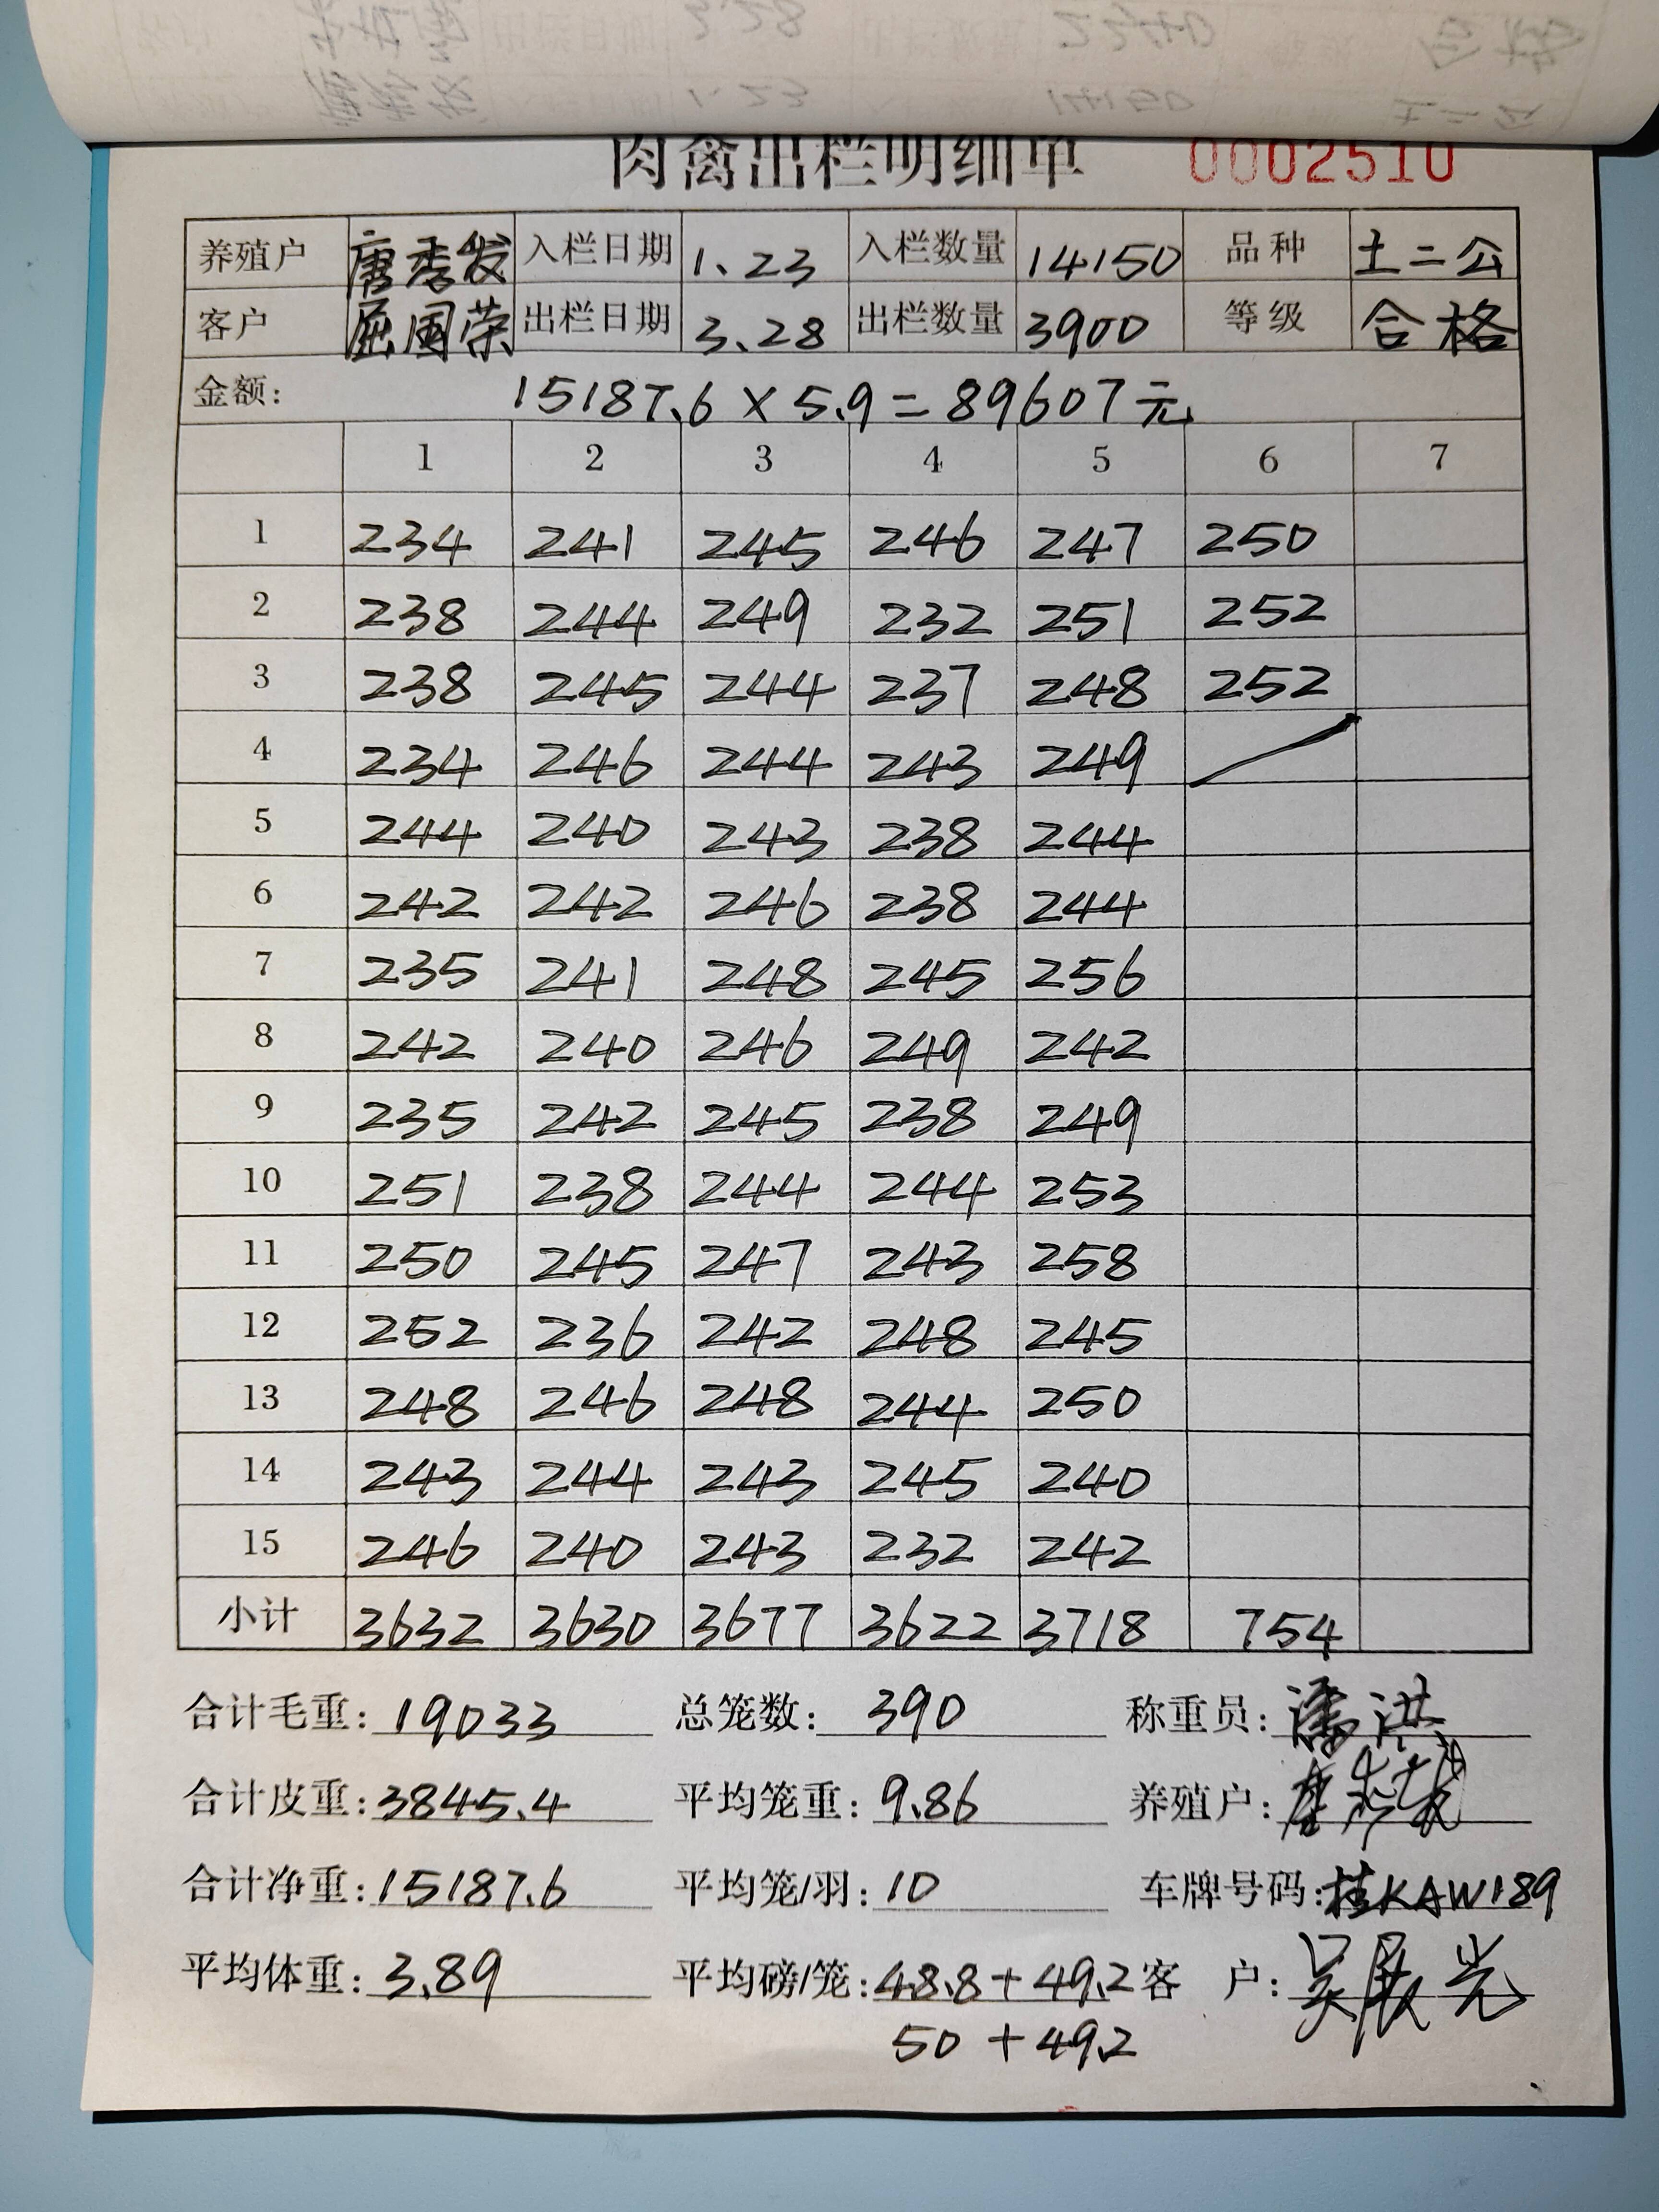 肉禽出栏明细单 0002510
养殖户 唐季发 入栏日期 1.23 入栏数量 14150 品种 土二公
客户 屈国荣 出栏日期 3.28 出栏数量 3900 等级 合格
金额: 15187.6×5.9=89607元
1 2 3 4 5 6 7
1 234 241 245 246 247 250
2 238 244 249 232 251 252
3 238 245 244 237 248 252
4 234 246 244 243 249
5 244 240 243 238 244
6 242 242 246 238 244
7 235 241 248 245 256
8 242 240 246 249 242
9 235 242 245 238 249
10 251 238 244 244 253
11 250 245 247 243 258
12 252 236 242 248 245
13 248 246 248 244 250
14 243 244 243 245 240
15 246 240 243 232 242
小计 3632 3630 3677 3622 3718 754
合计毛重: 19033 总笼数: 390 称重员: 潘洪
合计皮重: 3845.4 平均笼重: 9.86 养殖户:
合计净重: 15187.6 平均笼/羽: 10 车牌号码: 桂KAW189
平均体重: 3.89 平均磅/笼: 48.8+49.2 客 户:
50+49.2